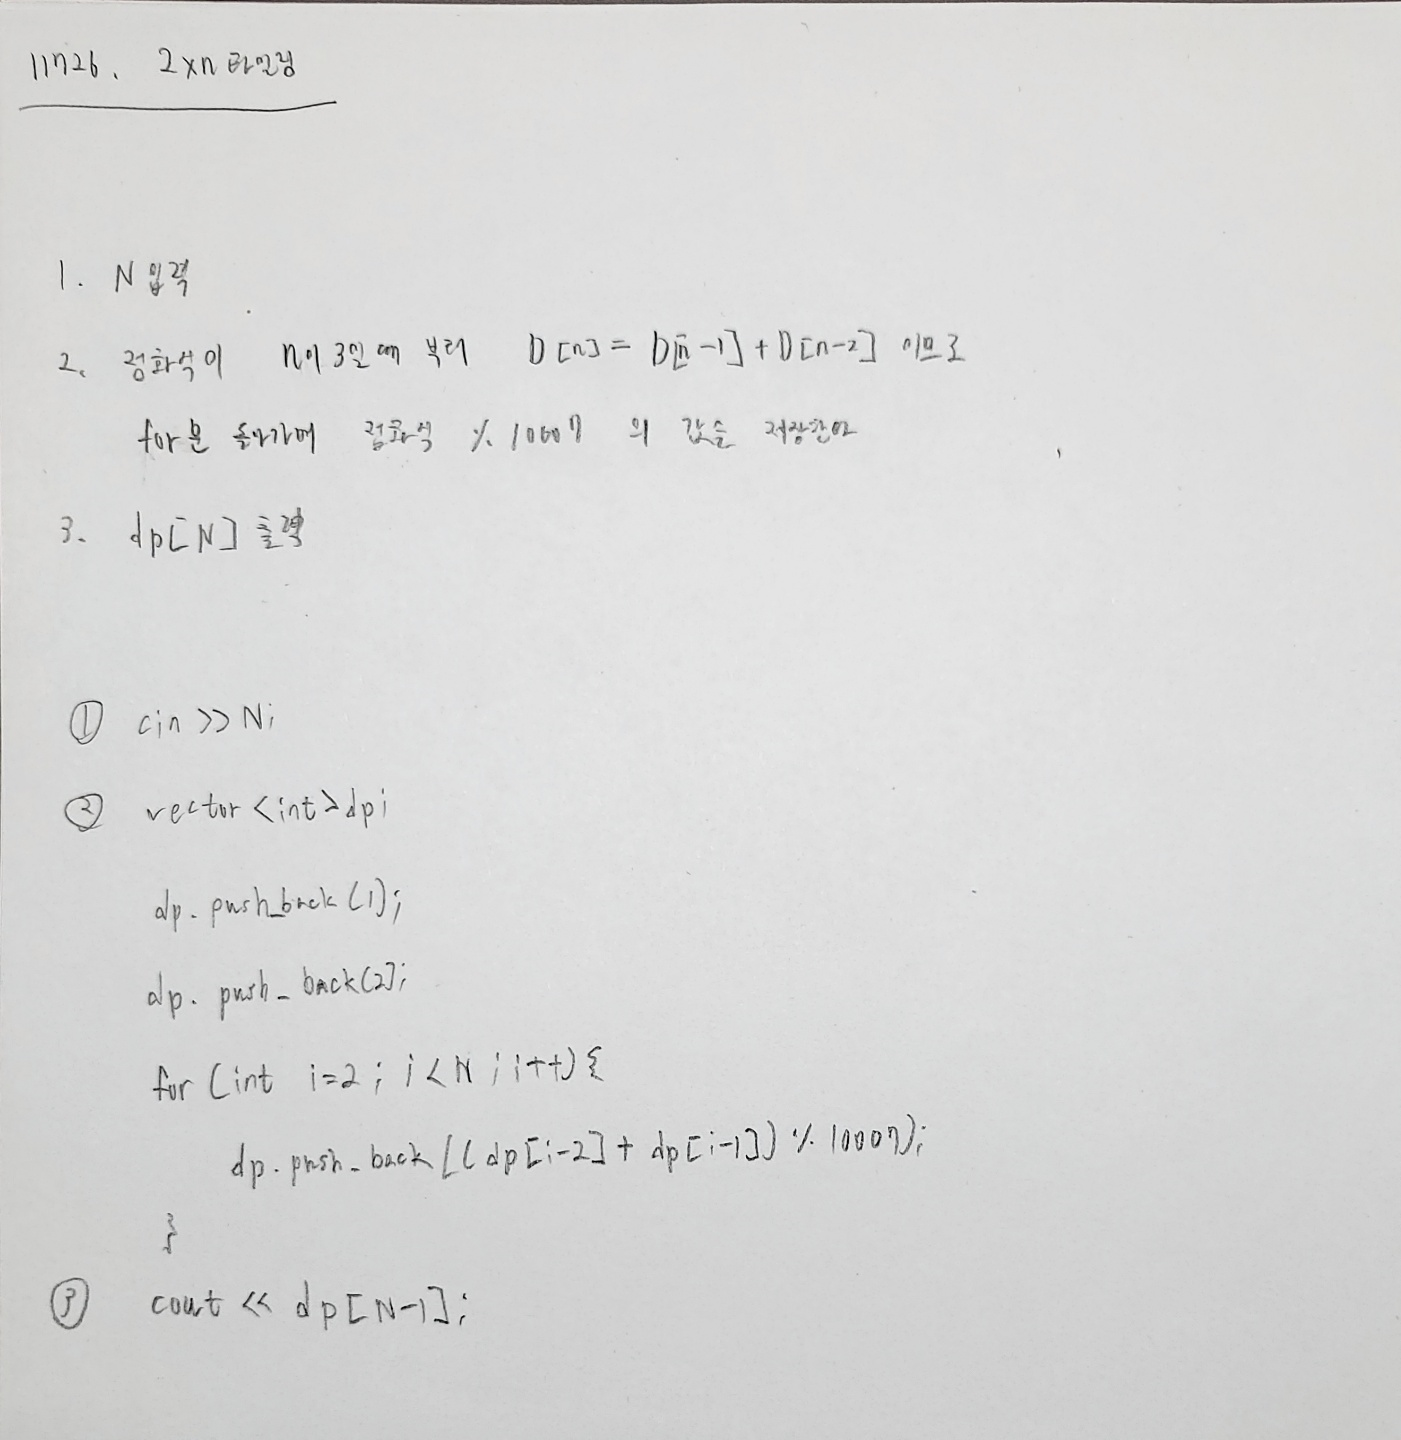 11726. 2xn 타일링
1. N 입력
2. 점화식이 n이 3일때 부터 D[n] = D[n-1] + D[n-2] 이므로
for문 돌아가며 점화식 % 10007 의 값을 저장한다
3. dp[N] 출력
① cin >> N;
② vector <int> dp;
dp.push_back(1);
dp.push_back(2);
for (int i=2; i<N; i++) {
dp.push_back((dp[i-2] + dp[i-1]) % 10007);
}
③ cout << dp[N-1];